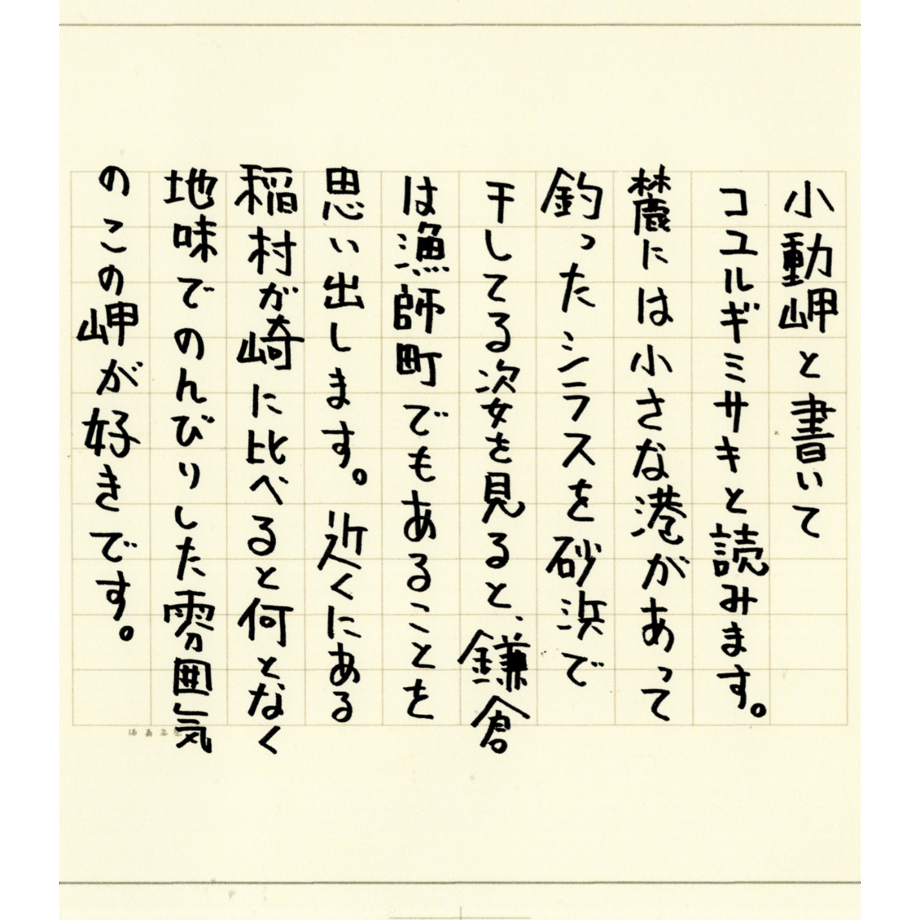 小動岬と書いて
コユルギミサキと読みます。
麓には小さな港があって
釣ったシラスを砂浜で
干してる姿を見ると、鎌倉
は漁師町でもあることを
思い出します。近くにある
稲村が崎に比べると何となく
地味でのんびりした雰囲気
のこの岬が好きです。